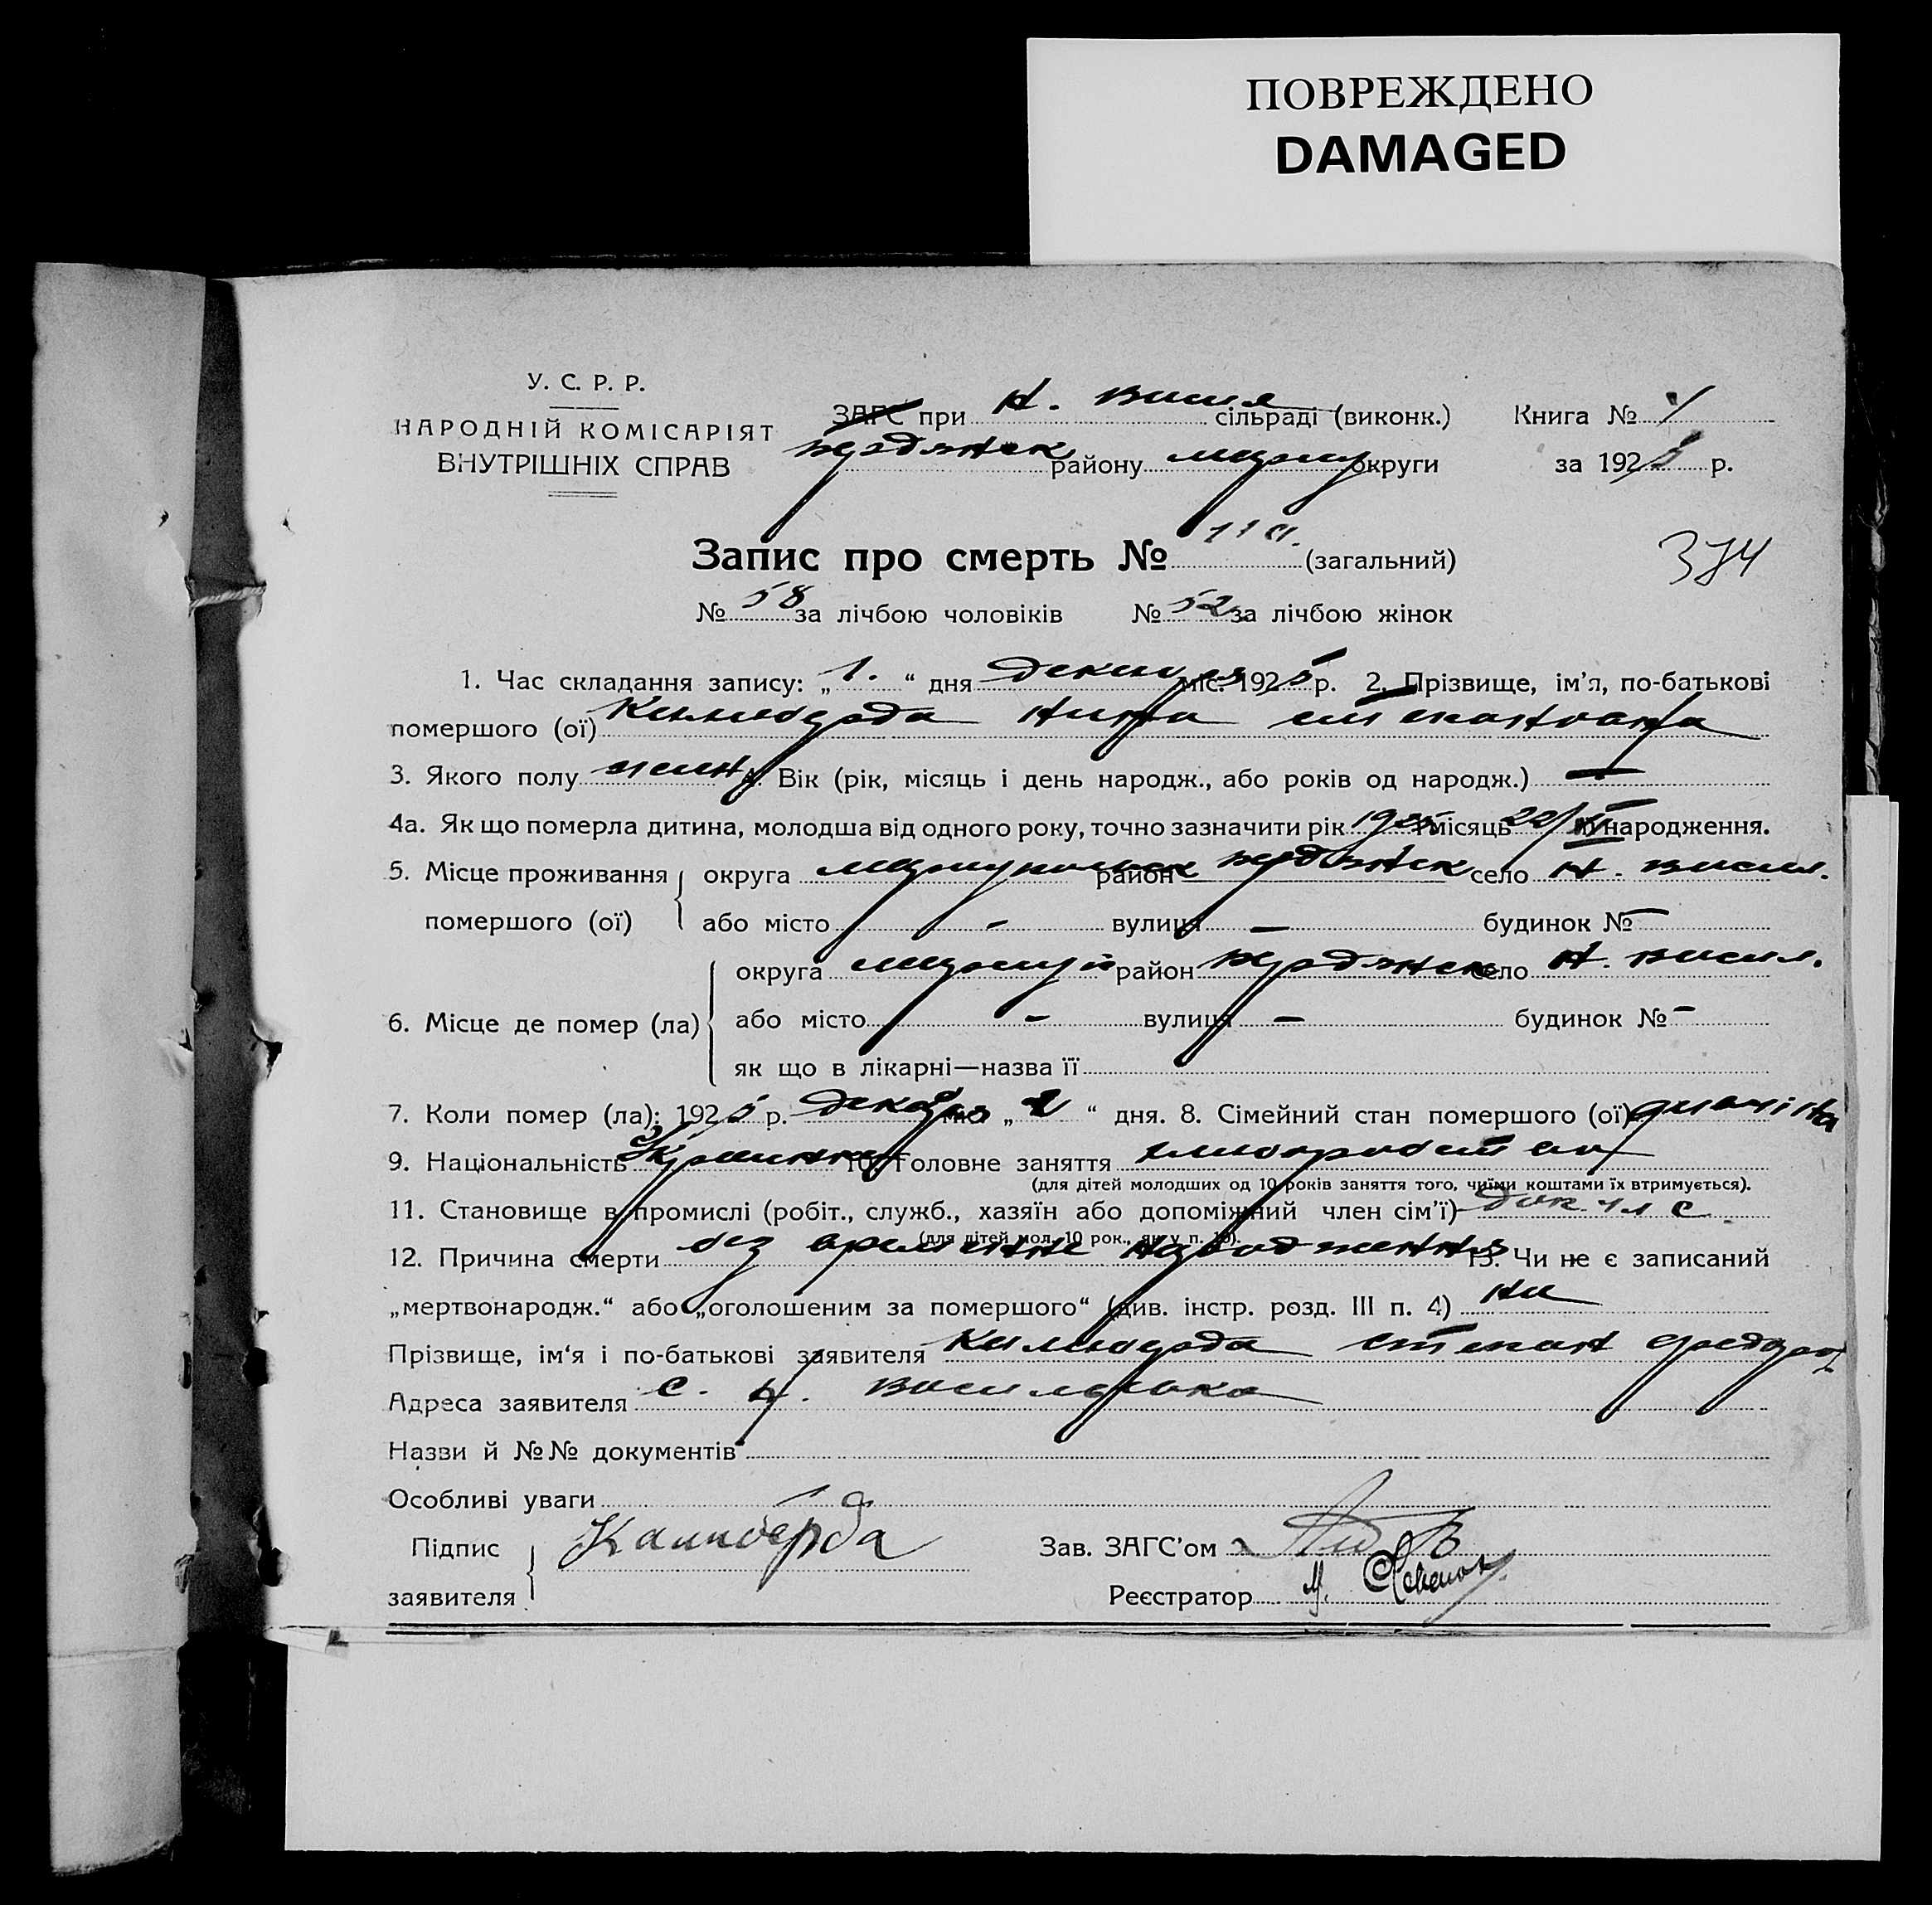 ПОВРЕЖДЕНО
DAMAGED
У. С. Р. Р.
НАРОДНІЙ КОМІСАРІЯТ
ВНУТРІШНІХ СПРАВ
ЗАГС при Н. Васил сільраді (виконк.) Книга №
Бердянск району Мариу округи за 1925 р.
Запис про смерть № 110. (загальний)
374
№ 58 за лічбою чоловіків № 52 за лічбою жінок
1. Час складання запису: „ 1. “ дня декабря міс. 1925 р. 2. Прізвище, ім’я, по-батькові
помершого (ої) Степановна
3. Якого полу жен 4. Вік (рік, місяць і день народж., або років од народж.) —
4а. Як що померла дитина, молодша від одного року, точно зазначити рік 1925 місяць 22/XI народження.
5. Місце проживання округа Мариупольск район Бердянск село Н. Васил.
помершого (ої) або місто - вулиця — будинок № —
округа Мариуп район Бердянск село Н. Васил.
6. Місце де помер (ла) або місто - вулиця — будинок № -
як що в лікарні—назва її
7. Коли помер (ла): 1925 р. декабря міс „ “ дня. 8. Сімейний стан помершого (ої) дитина
9. Національність 10. Головне заняття хлиборобство
(для дітей молодших од 10 років заняття того, чиїми коштами їх втримується).
11. Становище в промислі (робіт., служб., хазяїн або допоміжний член сім’ї) доп чл с.
(для дітей мол. 10 рок., як у п. 10).
12. Причина смерти без временне народження 13. Чи не є записаний
„мертвонародж.“ або „оголошеним за помершого“ (див. інстр. розд. III п. 4) ни
Прізвище, ім‘я і по-батькові заявителя Степан
Адреса заявителя с. Н. Васильевка
Назви й №№ документів
Особливі уваги
Підпис Зав. ЗАГС’ом
заявителя Реєстратор М.